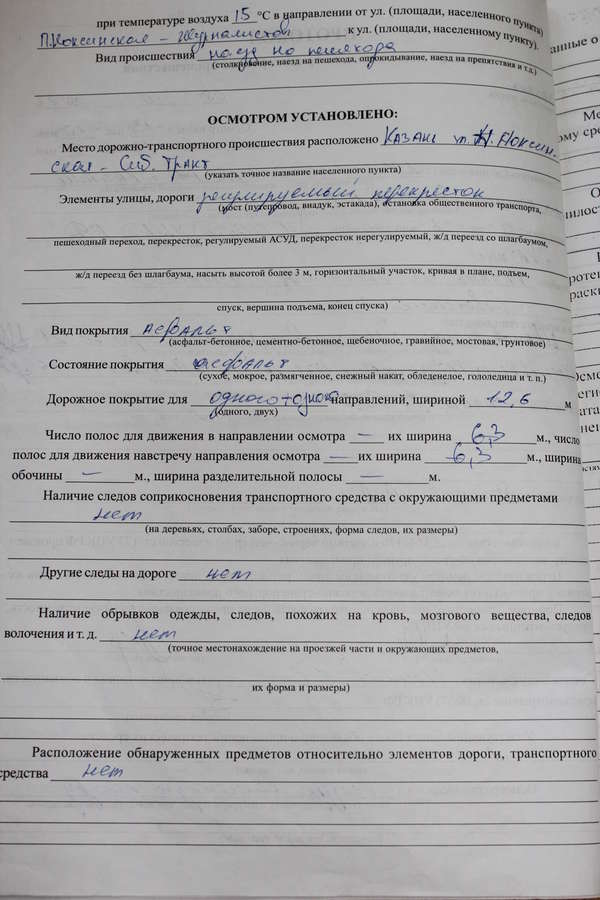 при температуре воздуха 15 °С в направлении от ул. (площади, населенного пункта)
П.Ноксинская - Журналистов к ул. (площади, населенному пункту).
Вид происшествия наезд на пешехода
(столкновение, наезд на пешехода, опрокидывание, наезд на препятствия и т.д.)
ОСМОТРОМ УСТАНОВЛЕНО:
Место дорожно-транспортного происшествия расположено Казань ул. Ноксин.
ская - Сиб. Тракт
(указать точное название населенного пункта)
Элементы улицы, дороги регулируемый перекресток
(мост (путепровод, виадук, эстакада), остановка общественного транспорта,
пешеходный переход, перекресток, регулируемый АСУД, перекресток нерегулируемый, ж/д переезд со шлагбаумом,
ж/д переезд без шлагбаума, насыть высотой более 3 м, горизонтальный участок, кривая в плане, подъем,
спуск, вершина подъема, конец спуска)
Вид покрытия асфальт
(асфальт-бетонное, цементно-бетонное, щебеночное, гравийное, мостовая, грунтовое)
Состояние покрытия асфальт
(сухое, мокрое, размягченное, снежный накат, обледенелое, гололедица и т. п.)
Дорожное покрытие для одного+одног направлений, шириной 12,6 м
(одного, двух)
Число полос для движения в направлении осмотра — их ширина 6,3 м., число
полос для движения навстречу направления осмотра — их ширина 6,3 м., ширина
обочины — м., ширина разделительной полосы — м.
Наличие следов соприкосновения транспортного средства с окружающими предметами
нет
(на деревьях, столбах, заборе, строениях, форма следов, их размеры)
Другие следы на дороге нет
Наличие обрывков одежды, следов, похожих на кровь, мозгового вещества, следов
волочения и т. д. нет
(точное местонахождение на проезжей части и окружающих предметов,
их форма и размеры)
Расположение обнаруженных предметов относительно элементов дороги, транспортного
средства нет